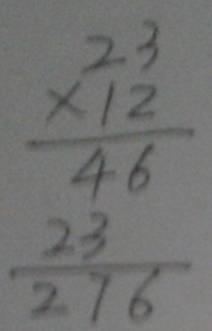 23
×12
46
23
276